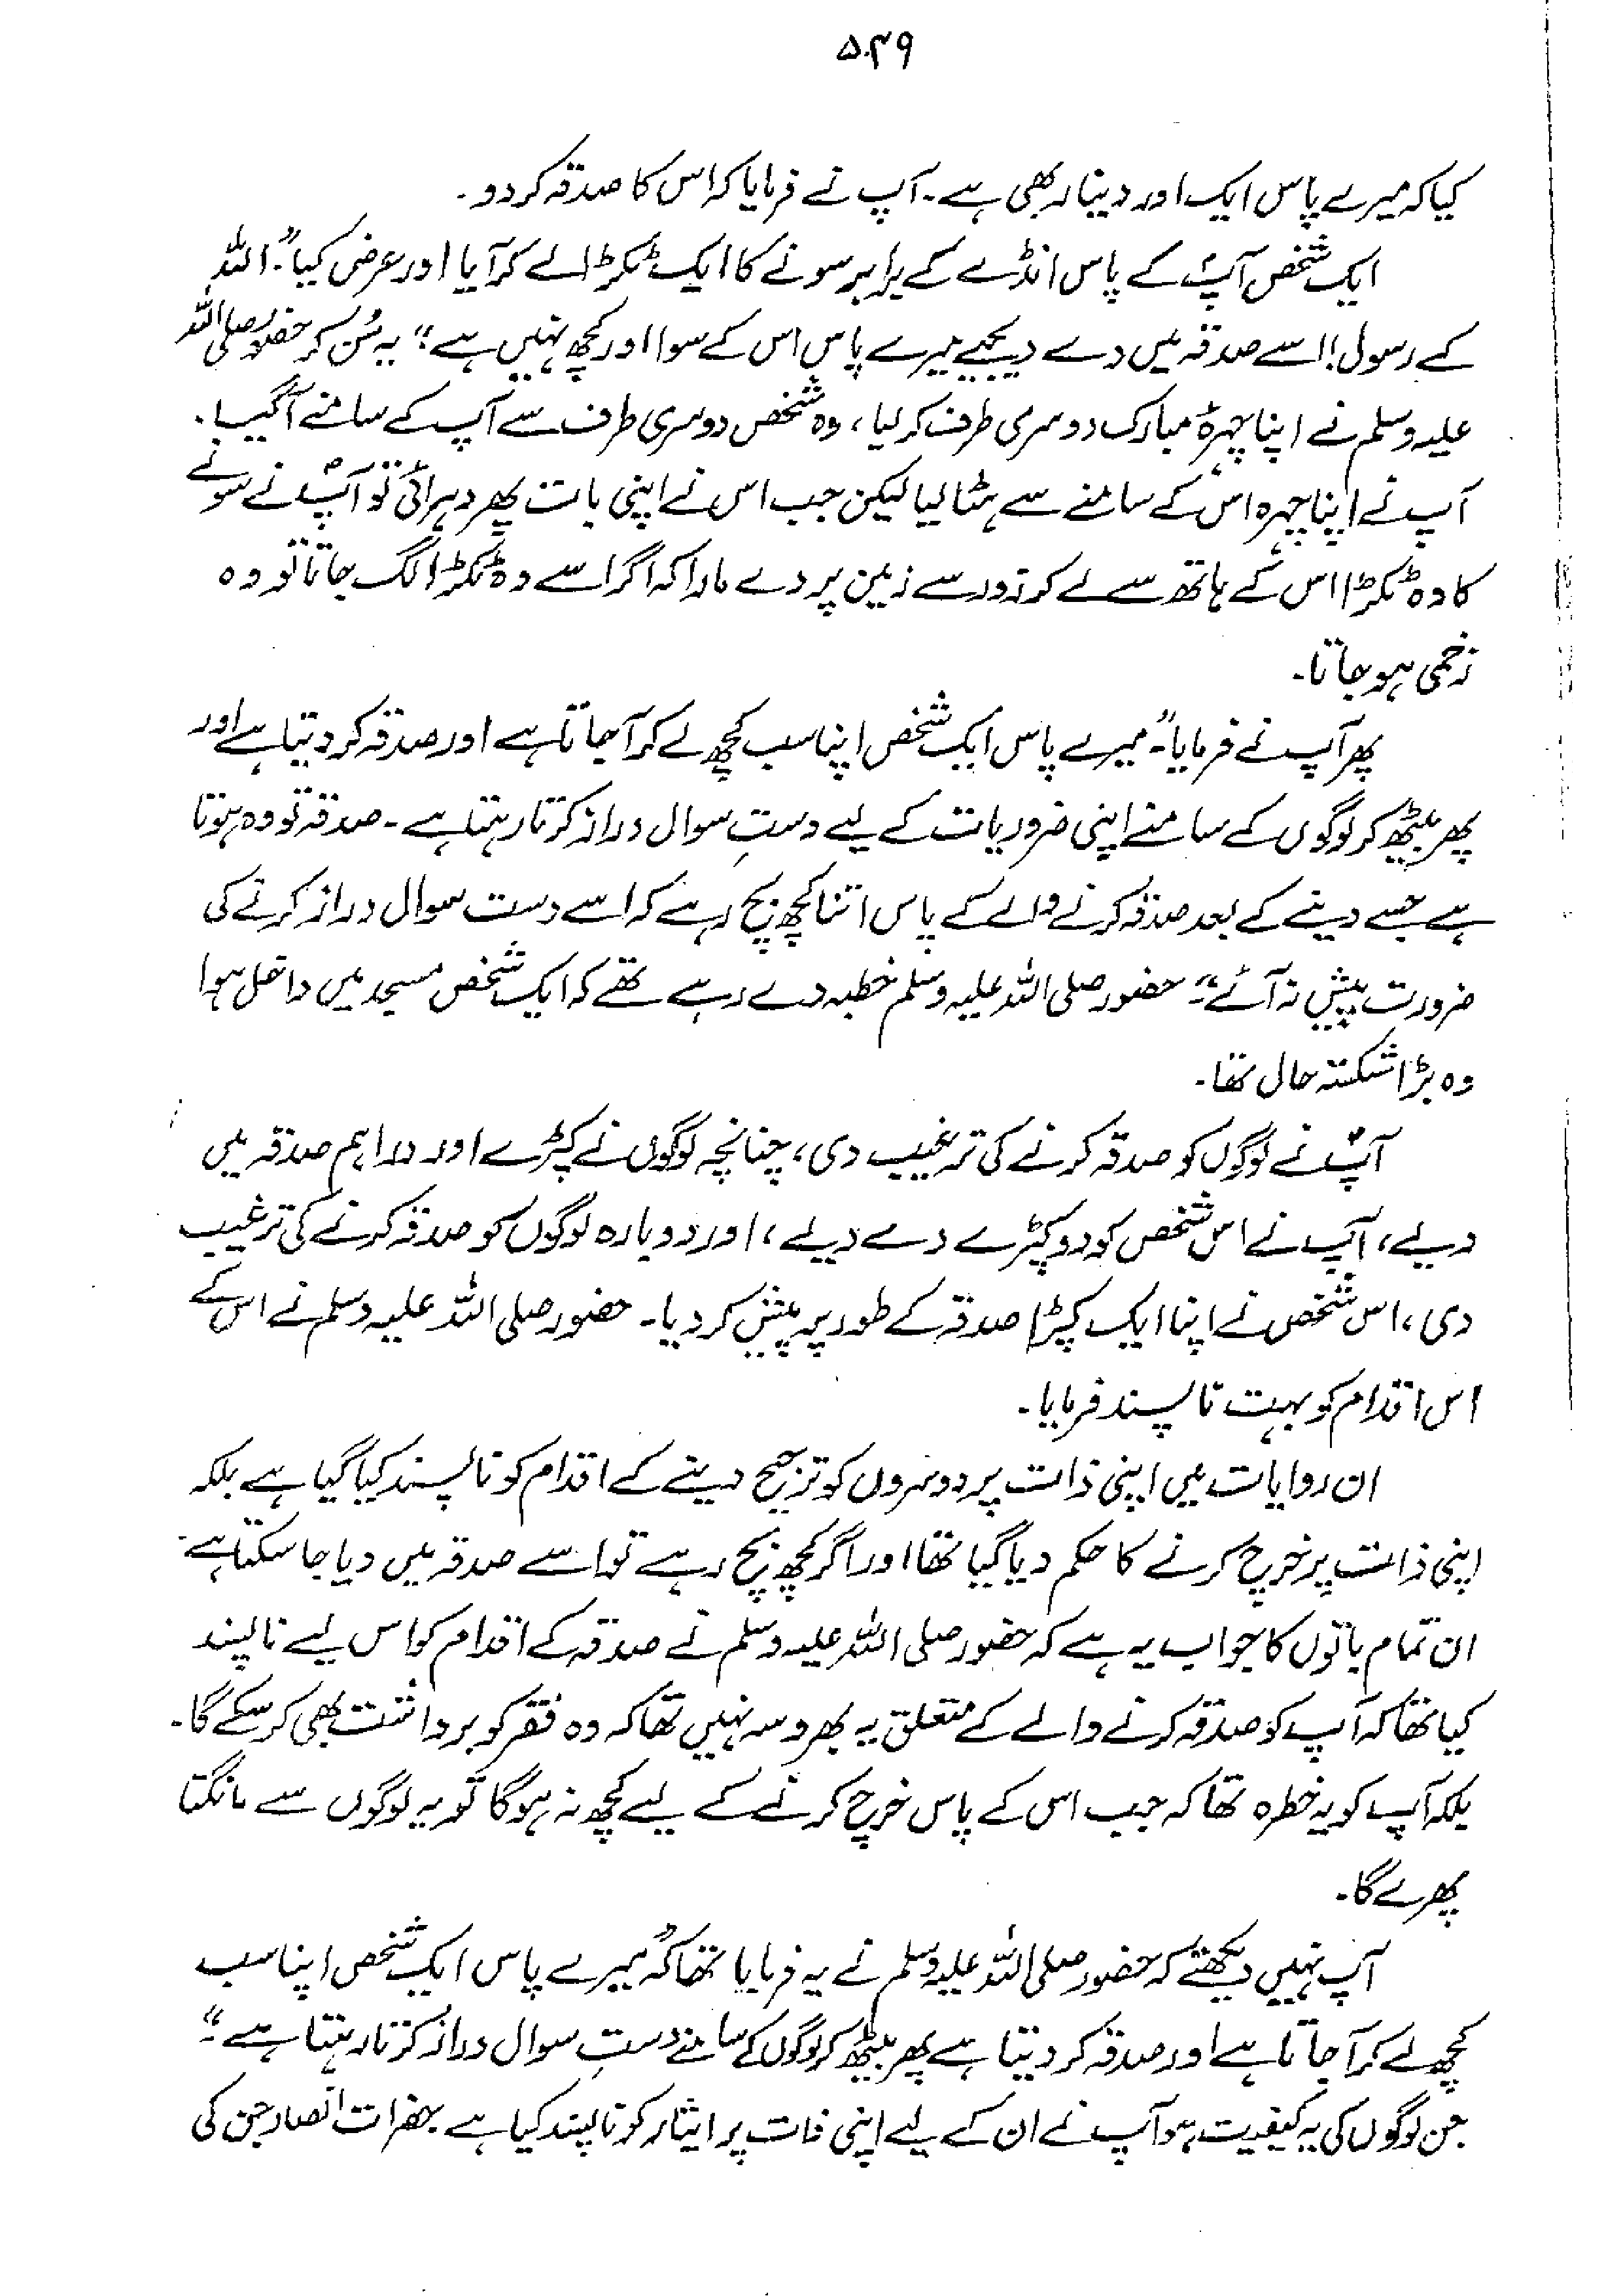 ۵۴۹
کیا کہ میرے پاس ایک اور دینار بھی ہے۔ آپ نے فرمایا کہ اس کا صدقہ کردو۔
ایک شخص آپؐ کے پاس انڈے کے برابر سونے کا ایک ٹکڑا لے کر آیا اور عرض کیا"۔ اللہ
کے رسول! اسے صدقہ میں دے دیجیے میرے پاس اس کے سوا اور کچھ نہیں ہے" یہ سُن کر حضور صلی اللہ
علیہ وسلم نے اپنا چہرۂ مبارک دوسری طرف کر لیا، وہ شخص دوسری طرف سے آپ کے سامنے آگیا۔
آپ نے اپنا چہرہ اس کے سامنے سے ہٹا لیا لیکن جب اس نے اپنی بات پھر دہرائی تو آپؐ نے سونے
کا وہ ٹکڑا اس کے ہاتھ سے لے کر زور سے زمین پر دے مارا کہ اگر اسے وہ ٹکڑا لگ جاتا تو وہ
زخمی ہو جاتا۔
پھر آپ نے فرمایا"۔ میرے پاس ایک شخص اپنا سب کچھ لے کر آ جاتا ہے اور صدقہ کر دیتا ہے اور
پھر بیٹھ کر لوگوں کے سامنے اپنی ضروریات کے لیے دستِ سوال دراز کرتا رہتا ہے۔ صدقہ تو وہ ہوتا
ہے جسے دینے کے بعد صدقہ کرنے والے کے پاس اتنا کچھ بچ رہے کہ اسے دست سوال دراز کرنے کی
ضرورت پیش نہ آئے"۔ حضور صلی اللہ علیہ وسلم خطبہ دے رہے تھے کہ ایک شخص مسجد میں داخل ہوا
وہ بڑا شکستہ حال تھا۔
آپؐ نے لوگوں کو صدقہ کرنے کی ترغیب دی، چنانچہ لوگوں نے کپڑے اور دراہم صدقہ میں
دیے، آپ نے اس شخص کو دو کپڑے دے دیے، اور دوبارہ لوگوں کو صدقہ کرنے کی ترغیب
دی، اس شخص نے اپنا ایک کپڑا صدقہ کے طور پر پیش کر دیا۔ حضور صلی اللہ علیہ وسلم نے اس کے
اس اقدام کو بہت ناپسند فرمایا۔
ان روایات میں اپنی ذات پر دوسروں کو ترجیح دینے کے اقدام کو ناپسند کیا گیا ہے بلکہ
اپنی ذات پر خرچ کرنے کا حکم دیا گیا تھا اور اگر کچھ بچ رہے تو اسے صدقہ میں دیا جا سکتا ہے۔
ان تمام باتوں کا جواب یہ ہے کہ حضور صلی اللہ علیہ وسلم نے صدقہ کے اقدام کو اس لیے ناپسند
کیا تھا کہ آپ کو صدقہ کرنے والے کے متعلق یہ بھروسہ نہیں تھا کہ وہ فقر کو برداشت بھی کر سکے گا۔
بلکہ آپ کو یہ خطرہ تھا کہ جب اس کے پاس خرچ کرنے کے لیے کچھ نہ ہوگا تو یہ لوگوں سے مانگتا
پھرے گا۔
آپ نہیں دیکھتے کہ حضور صلی اللہ علیہ وسلم نے یہ فرمایا تھا کہ "میرے پاس ایک شخص اپنا سب
کچھ لے کر آ جاتا ہے اور صدقہ کر دیتا ہے پھر بیٹھ کر لوگوں کے سامنے دستِ سوال دراز کرتا رہتا ہے"۔
جن لوگوں کی یہ کیفیت ہو آپ نے ان کے لیے اپنی ذات پر ایثار کو ناپسند کیا ہے۔ حضرات انصار جن کی